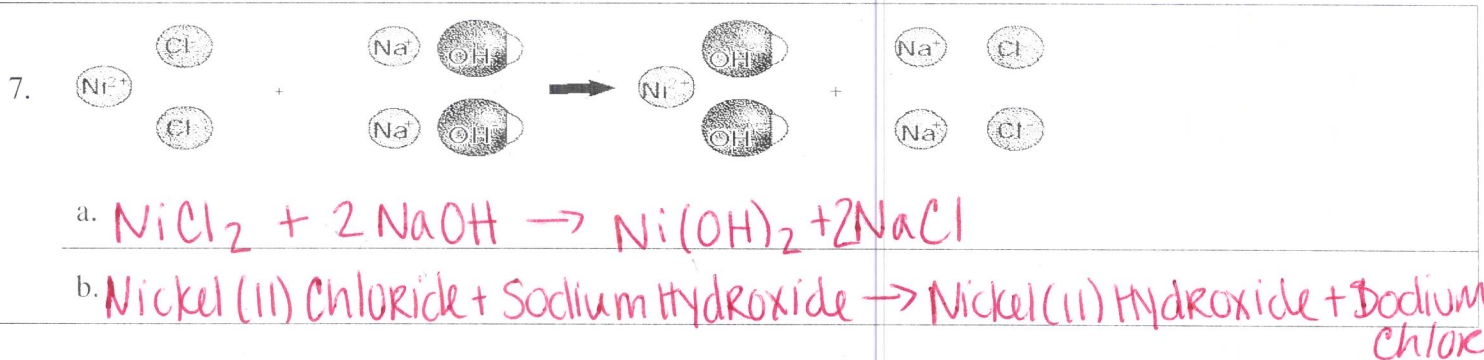 Cl⁻ Na⁺ OH⁻ OH⁻ Na⁺ Cl⁻
7. Ni²⁺ + Ni²⁺ +
Cl⁻ Na⁺ OH⁻ OH⁻ Na⁺ Cl⁻
a. NiCl₂ + 2 NaOH → Ni(OH)₂ +2NaCl
b. Nickel (II) Chloride + Sodium Hydroxide → Nickel (II) Hydroxide + Sodium
Chlor